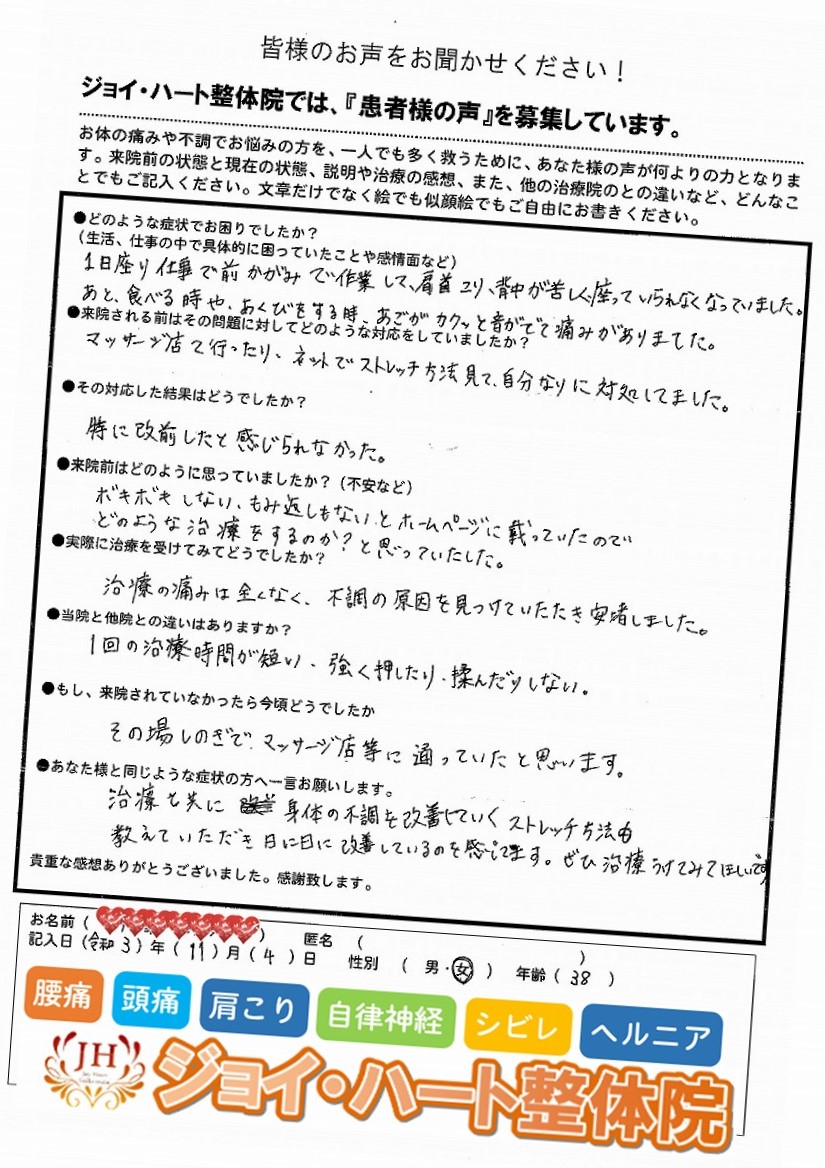 皆様のお声をお聞かせください！
ジョイ・ハート整体院では、『患者様の声』を募集しています。
お体の痛みや不調でお悩みの方を、一人でも多く救うために、あなた様の声が何よりの力となりま
す。来院前の状態と現在の状態、説明や治療の感想、また、他の治療院のとの違いなど、どんなこ
とでもご記入ください。文章だけでなく絵でも似顔絵でもご自由にお書きください。
●どのような症状でお困りでしたか？
（生活、仕事の中で具体的に困っていたことや感情面など）
1日座り仕事で前かがみで作業して、肩首コリ、背中が苦しく、座っていられなくなっていました。
あと、食べる時や、あくびをする時、あごがカクッと音がでて痛みがありました。
●来院される前はその問題に対してどのような対応をしていましたか？
マッサージ店て行ったり、ネットでストレッチ方法見て、自分なりに対処してました。
●その対応した結果はどうでしたか？
特に改前したと感じられなかった。
●来院前はどのように思っていましたか？（不安など）
ボキボキしない、もみ返しもないとホームページに載っていたので
どのような治療をするのか？と思っていたした。
●実際に治療を受けてみてどうでしたか？
治療の痛みは全くなく、不調の原因を見つけていただき安堵しました。
●当院と他院との違いはありますか？
1回の治療時間が短い、強く押したり、揉んだりしない。
●もし、来院されていなかったら今頃どうでしたか
その場しのぎで、マッサージ店等に通っていたと思います。
●あなた様と同じような症状の方へ一言お願いします。
治療も共に 身体の不調を改善していくストレッチ方法も
教えていただき日に日に改善しているのを感じてます。ぜひ治療うけてみてほしいです
貴重な感想ありがとうございました。感謝致します。
お名前（ ） 匿名 （ ）
記入日（令和3）年（11）月（4）日 性別 （ 男・女 ） 年齢（38 ）
腰痛 頭痛 肩こり 自律神経 シビレ ヘルニア
JH
ジョイ・ハート整体院